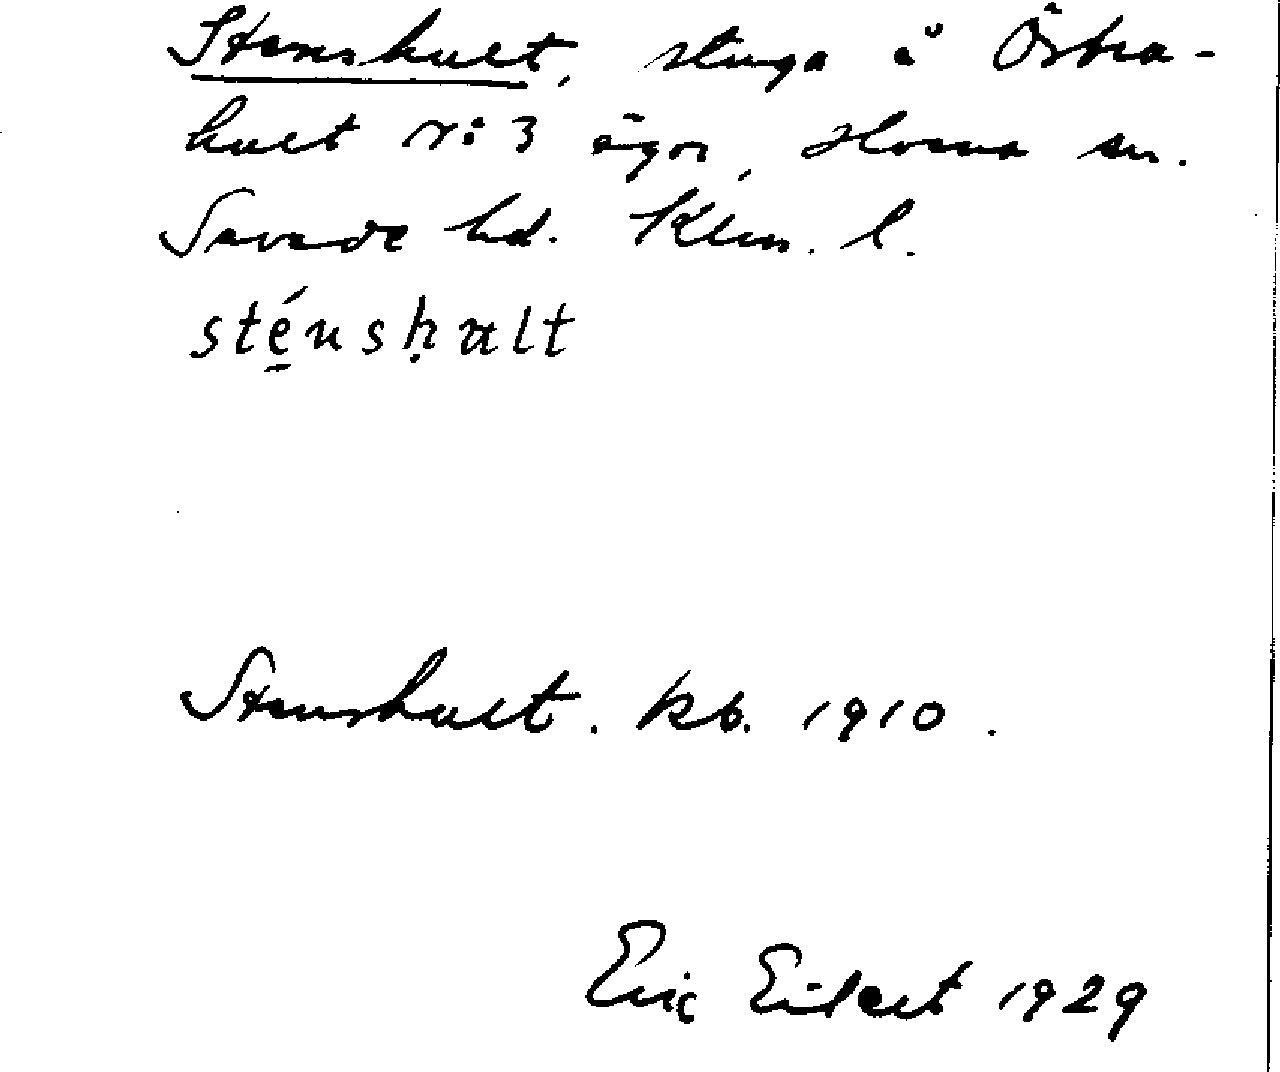 Stenshult, stuga å Östra-
hult N:o 3 ägor, Horna sn.
Sevede hd. Klm. l.
sté̠nshu̇lt
Stenshult. kb. 1910.
Eric Eilert 1929